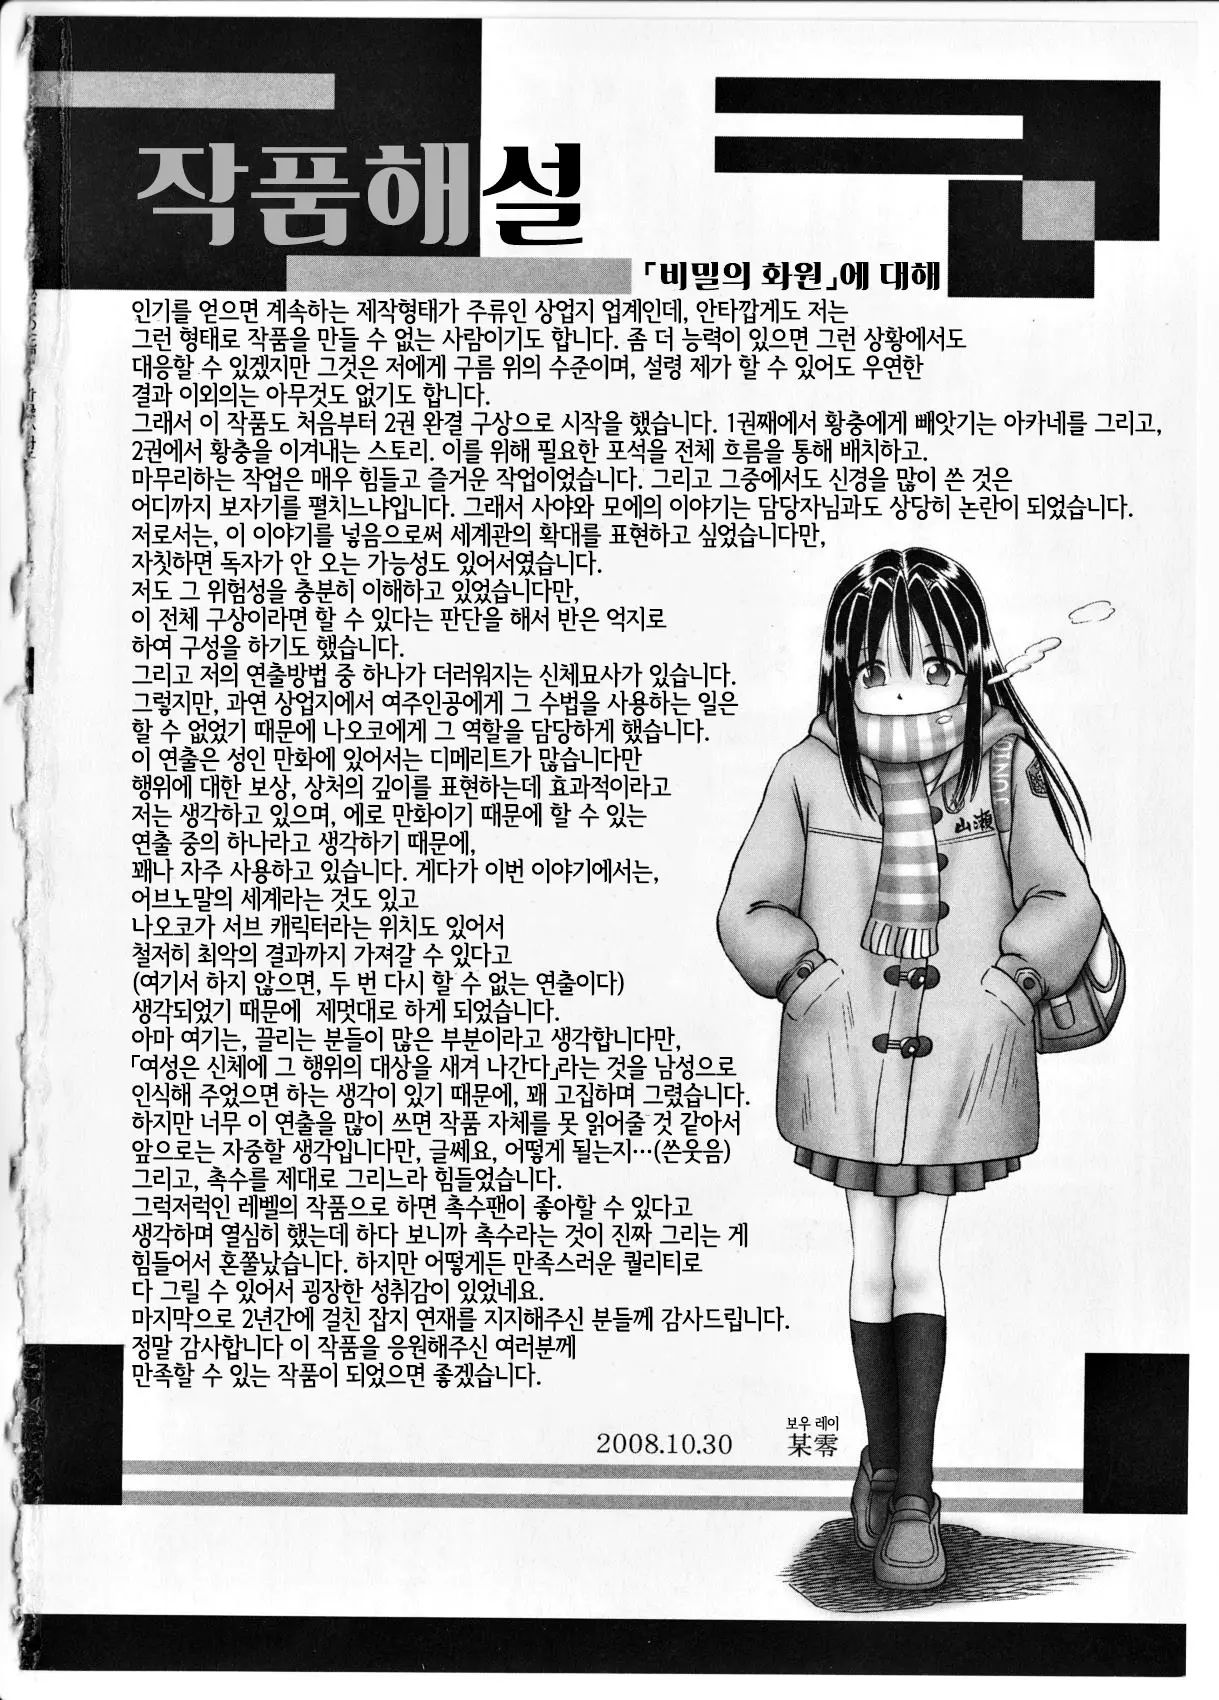 작품해설
「비밀의 화원」에 대해
인기를 얻으면 계속하는 제작형태가 주류인 상업지 업계인데, 안타깝게도 저는
그런 형태로 작품을 만들 수 없는 사람이기도 합니다. 좀 더 능력이 있으면 그런 상황에서도
대응할 수 있겠지만 그것은 저에게 구름 위의 수준이며, 설령 제가 할 수 있어도 우연한
결과 이외의는 아무것도 없기도 합니다.
그래서 이 작품도 처음부터 2권 완결 구상으로 시작을 했습니다. 1권째에서 황충에게 빼앗기는 아카네를 그리고,
2권에서 황충을 이겨내는 스토리. 이를 위해 필요한 포석을 전체 흐름을 통해 배치하고.
마무리하는 작업은 매우 힘들고 즐거운 작업이었습니다. 그리고 그중에서도 신경을 많이 쓴 것은
어디까지 보자기를 펼치느냐입니다. 그래서 사야와 모에의 이야기는 담당자님과도 상당히 논란이 되었습니다.
저로서는, 이 이야기를 넣음으로써 세계관의 확대를 표현하고 싶었습니다만,
자칫하면 독자가 안 오는 가능성도 있어서였습니다.
저도 그 위험성을 충분히 이해하고 있었습니다만,
이 전체 구상이라면 할 수 있다는 판단을 해서 반은 억지로
하여 구성을 하기도 했습니다.
그리고 저의 연출방법 중 하나가 더러워지는 신체묘사가 있습니다.
그렇지만, 과연 상업지에서 여주인공에게 그 수법을 사용하는 일은
할 수 없었기 때문에 나오코에게 그 역할을 담당하게 했습니다.
이 연출은 성인 만화에 있어서는 디메리트가 많습니다만
행위에 대한 보상, 상처의 깊이를 표현하는데 효과적이라고
저는 생각하고 있으며, 에로 만화이기 때문에 할 수 있는
연출 중의 하나라고 생각하기 때문에,
꽤나 자주 사용하고 있습니다. 게다가 이번 이야기에서는,
어브노말의 세계라는 것도 있고
나오코가 서브 캐릭터라는 위치도 있어서
철저히 최악의 결과까지 가져갈 수 있다고
(여기서 하지 않으면, 두 번 다시 할 수 없는 연출이다)
생각되었기 때문에 제멋대로 하게 되었습니다.
아마 여기는, 끌리는 분들이 많은 부분이라고 생각합니다만,
「여성은 신체에 그 행위의 대상을 새겨 나간다」라는 것을 남성으로
인식해 주었으면 하는 생각이 있기 때문에, 꽤 고집하며 그렸습니다.
하지만 너무 이 연출을 많이 쓰면 작품 자체를 못 읽어줄 것 같아서
앞으로는 자중할 생각입니다만, 글쎄요, 어떻게 될는지…(쓴웃음)
그리고, 촉수를 제대로 그리느라 힘들었습니다.
그럭저럭인 레벨의 작품으로 하면 촉수팬이 좋아할 수 있다고
생각하며 열심히 했는데 하다 보니까 촉수라는 것이 진짜 그리는 게
힘들어서 혼쭐났습니다. 하지만 어떻게든 만족스러운 퀄리티로
다 그릴 수 있어서 굉장한 성취감이 있었네요.
마지막으로 2년간에 걸친 잡지 연재를 지지해주신 분들께 감사드립니다.
정말 감사합니다 이 작품을 응원해주신 여러분께
만족할 수 있는 작품이 되었으면 좋겠습니다.
山瀬
보우 레이
2008.10.30 某零